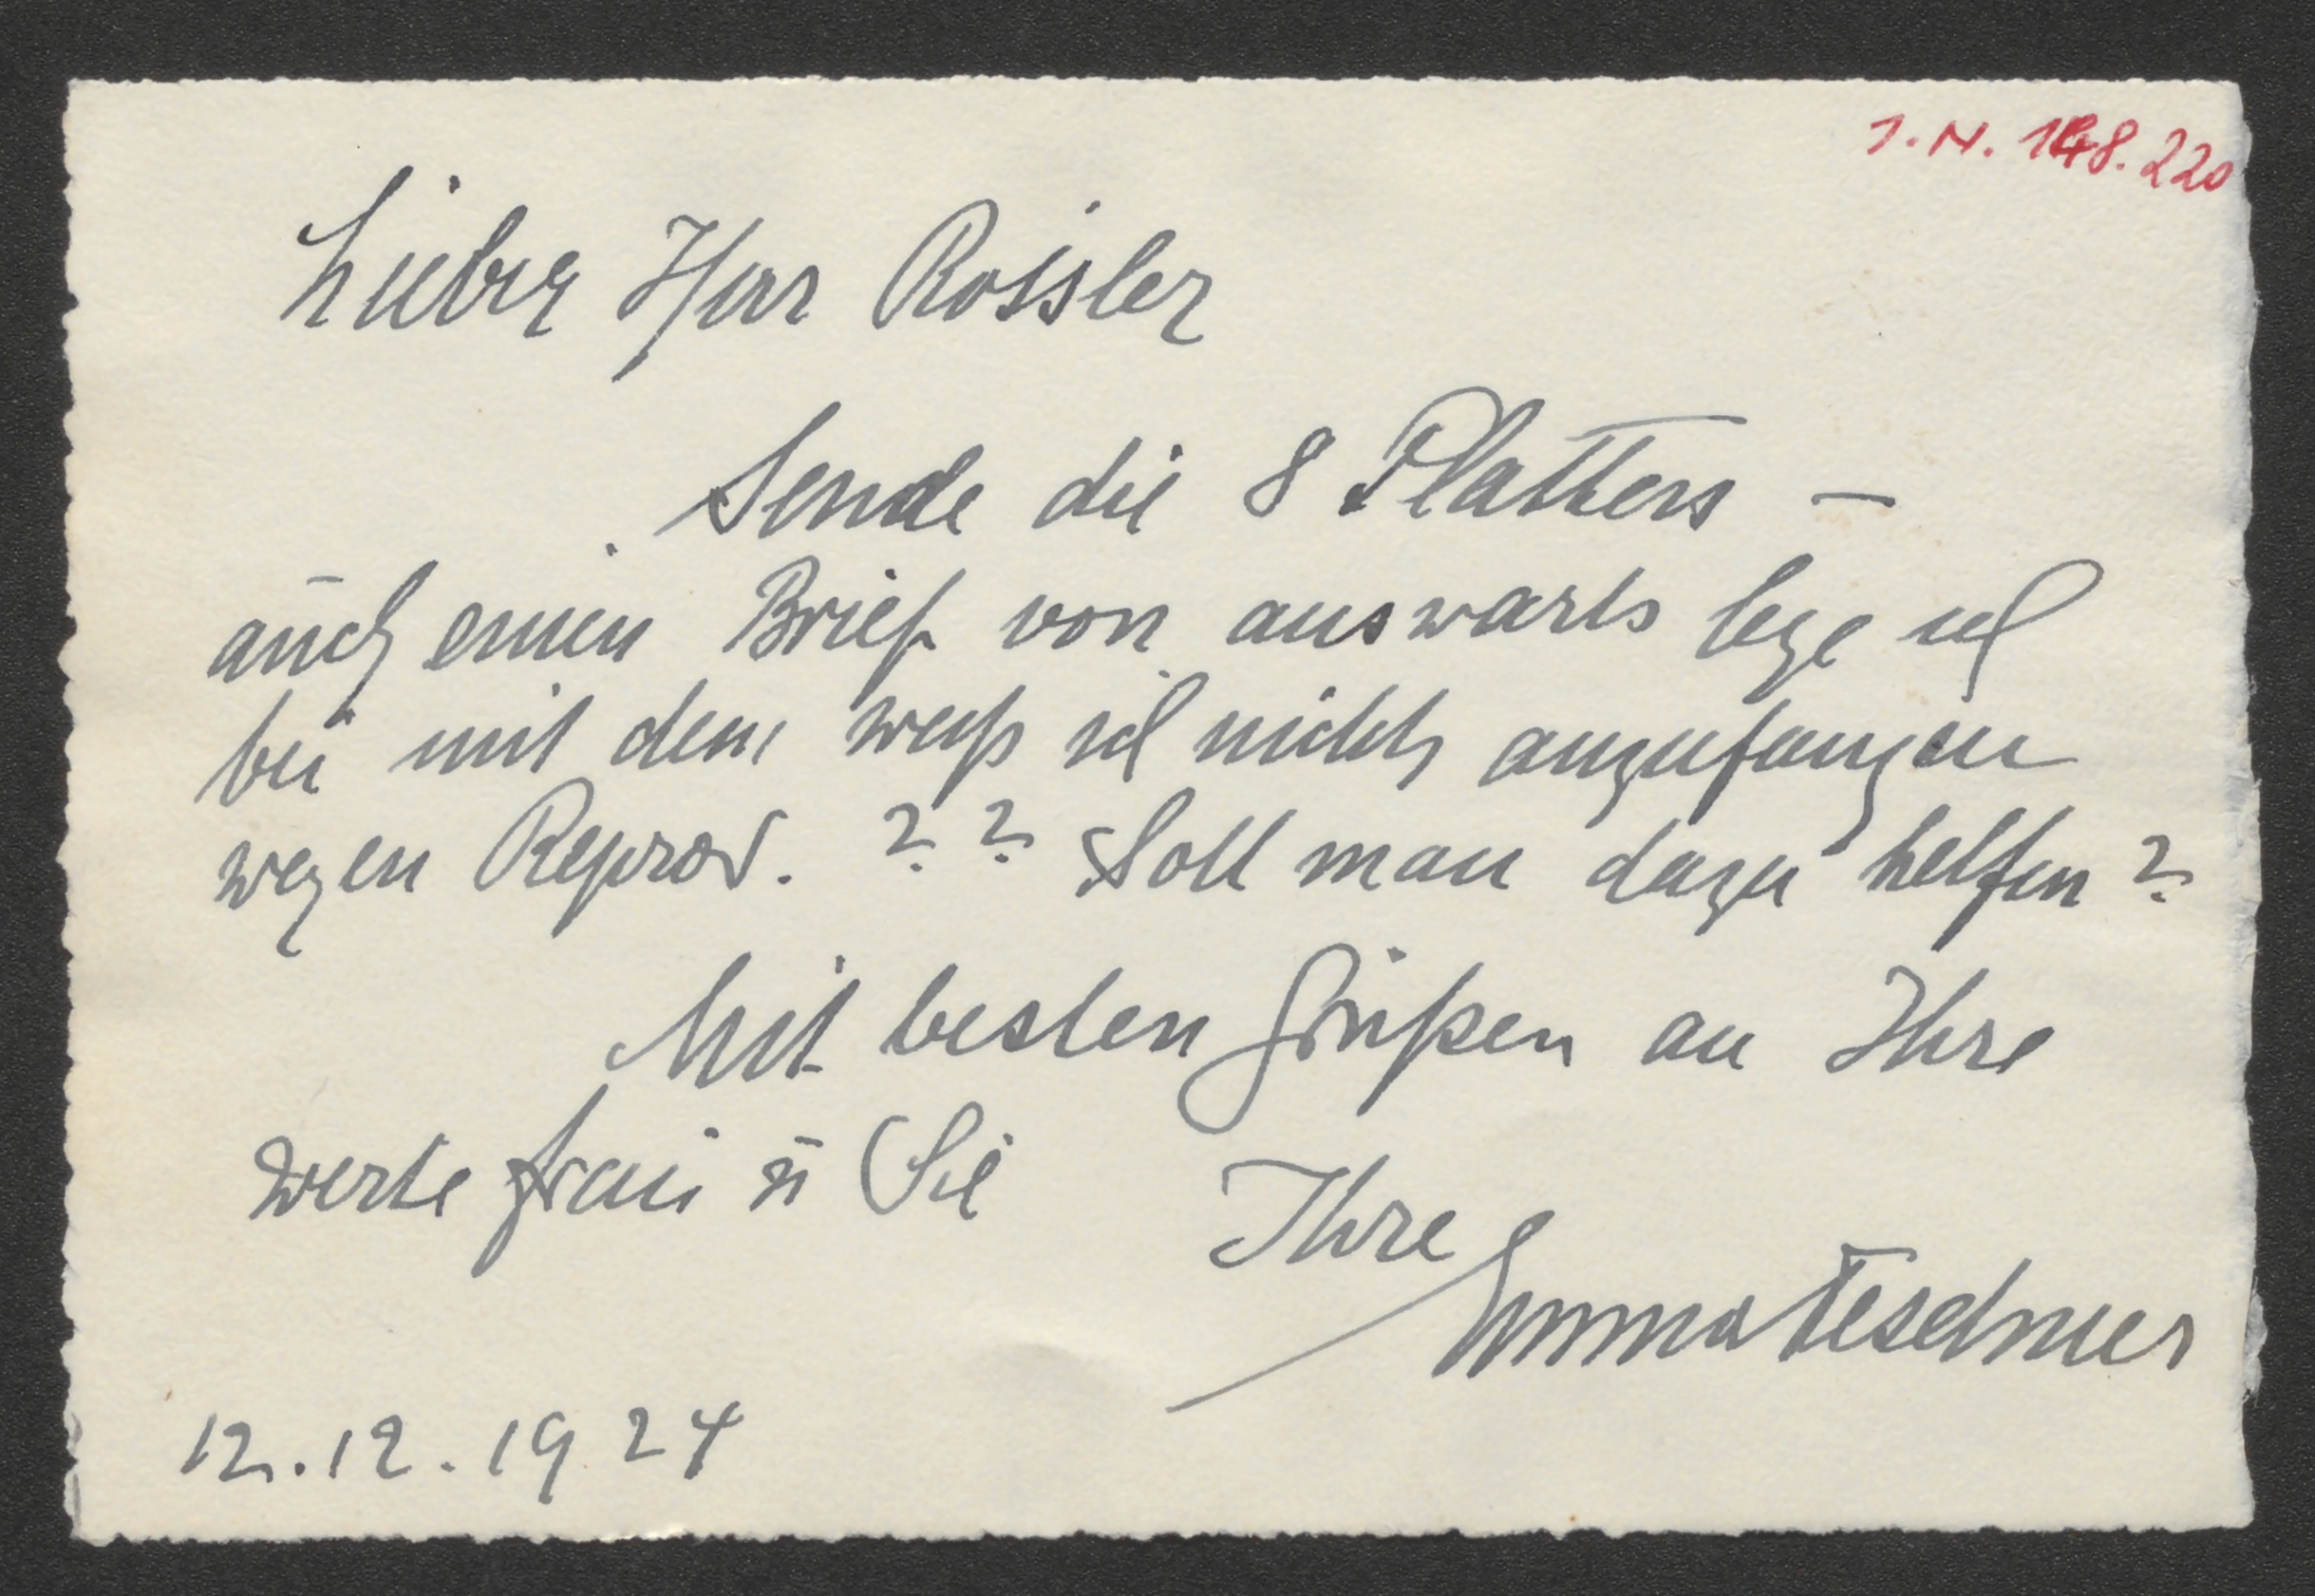 I.N. 148.220
Lieber Herr Rössler
Sende die 8 Platten –
auch einen Brief von auswärts lege ich
bei mit dem weiß ich nichts anzufangen
wegen Reprod. ?? Soll man dazu helfen?
Mit besten Grüßen an Ihre
werte Frau u Sie
Ihre
Emma Teschner
12.12.1924